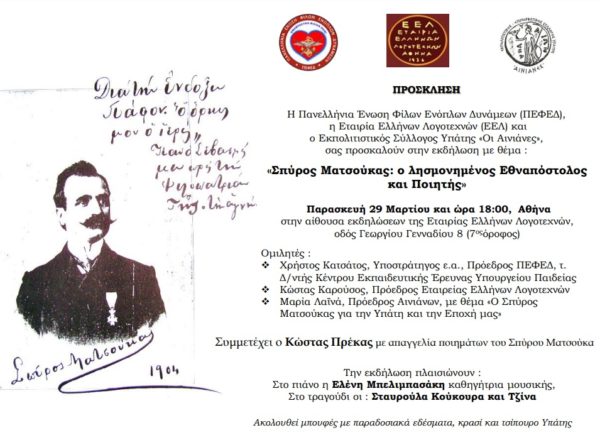 ΕΕΛ
ΕΤΑΙΡΙΑ
ΕΛΛΗΝΩΝ
ΛΟΓΟΤΕΧΝΩΝ
ΑΘΗΝΑ
1934
ΑΙΝΙΑΝΕΣ
ΠΡΟΣΚΛΗΣΗ
Η Πανελλήνια Ένωση Φίλων Ενόπλων Δυνάμεων (ΠΕΦΕΔ),
η Εταιρία Ελλήνων Λογοτεχνών (ΕΕΛ) και
ο Εκπολιτιστικός Σύλλογος Υπάτης «Οι Αινιάνες»,
σας προσκαλούν στην εκδήλωση με θέμα :
«Σπύρος Ματσούκας: ο Λησμονημένος Εθναπόστολος
και Ποιητής»
Παρασκευή 29 Μαρτίου και ώρα 18:00, Αθήνα
στην αίθουσα εκδηλώσεων της Εταιρίας Ελλήνων Λογοτεχνών,
οδός Γεωργίου Γενναδίου 8 (7ος όροφος)
Ομιλητές :
❖ Χρήστος Κατσάτος, Υποστράτηγος ε.α., Πρόεδρος ΠΕΦΕΔ, τ.
Δ/ντής Κέντρου Εκπαιδευτικής Έρευνας Υπουργείου Παιδείας
❖ Κώστας Καρούσος, Πρόεδρος Εταιρείας Ελλήνων Λογοτεχνών
❖ Μαρία Λαϊνά, Πρόεδρος Αινιάνων, με θέμα «Ο Σπύρος
Ματσούκας για την Υπάτη και την Εποχή μας»
Συμμετέχει ο Κώστας Πρέκας με απαγγελία ποιημάτων του Σπύρου Ματσούκα
Την εκδήλωση πλαισιώνουν :
Στο πιάνο η Ελένη Μπελιμπασάκη καθηγήτρια μουσικής,
Στο τραγούδι οι : Σταυρούλα Κούκουρα και Τζίνα
Ακολουθεί μπουφές με παραδοσιακά εδέσματα, κρασί και τσίπουρο Υπάτης
Διὰ τὴν Ἔνδοξη
μου ὁ ἱερὸς
Σπῦρος Ματσούκας
1904